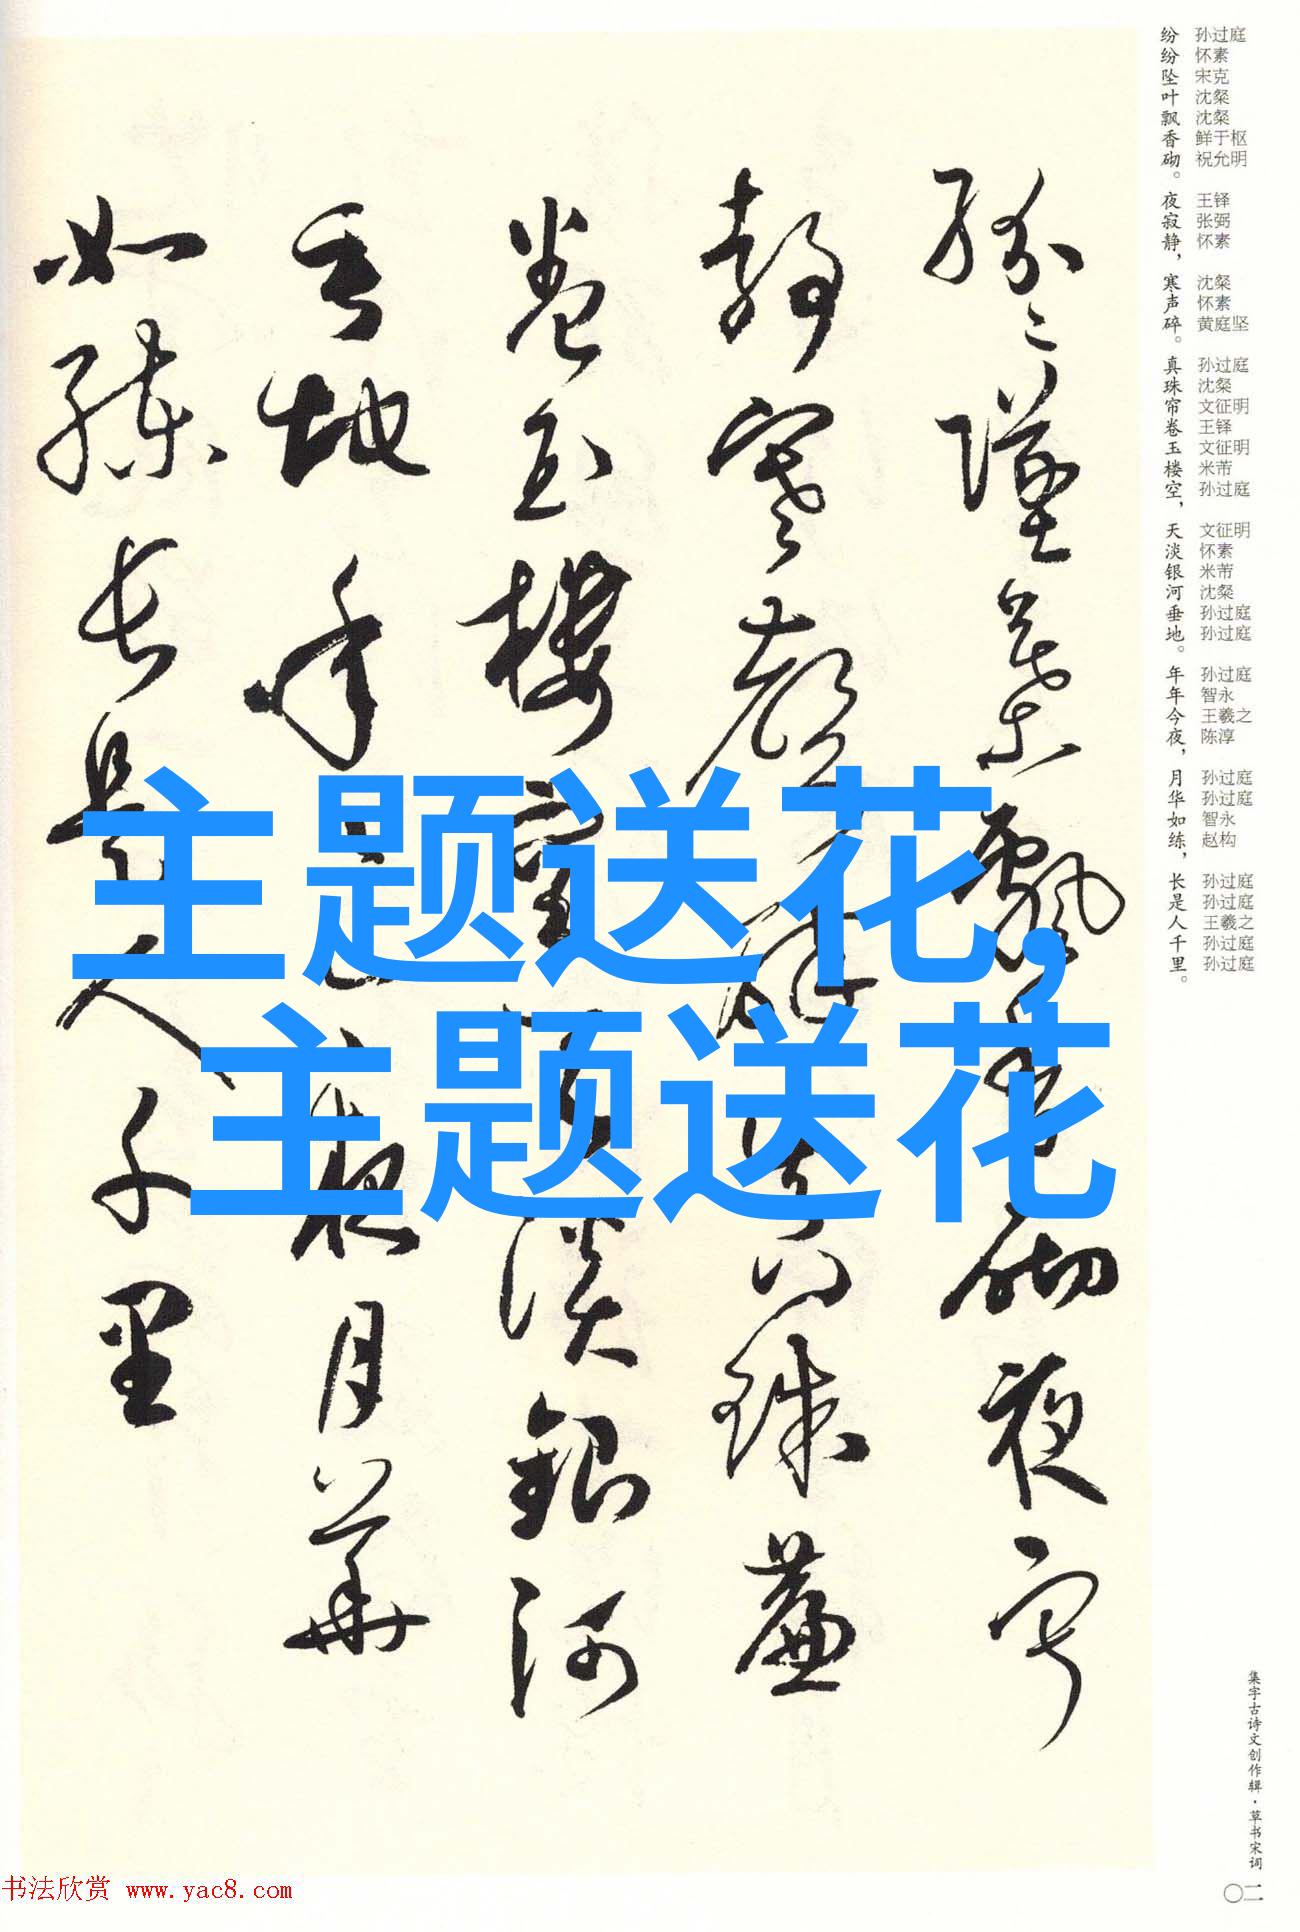 纷纷坠叶飘香砌。夜寂静，寒声碎。真珠帘卷玉楼空，天淡银河垂地。年年今夜，月华如练，长是人千里。
孙过庭 怀素 宋克 沈粲 沈粲 鲜于枢 祝允明 王铎 张弼 怀素 沈粲 怀素 黄庭坚 孙过庭 沈粲 文征明 王铎 文征明 米芾 孙过庭 文征明 怀素 米芾 沈粲 孙过庭 孙过庭 孙过庭 智永 王羲之 陈淳 孙过庭 孙过庭 智永 赵构 孙过庭 孙过庭 王羲之 孙过庭 孙过庭
纷〻坠叶飘香砌夜寂
静寒声碎真珠簾
卷玉樓空天淡銀河
垂地年〻今夜月華
如練長是人千里
主题送花,
主题送花
集字古诗文创作辑·草书宋词
〇二
书法欣赏 www.yac8.com